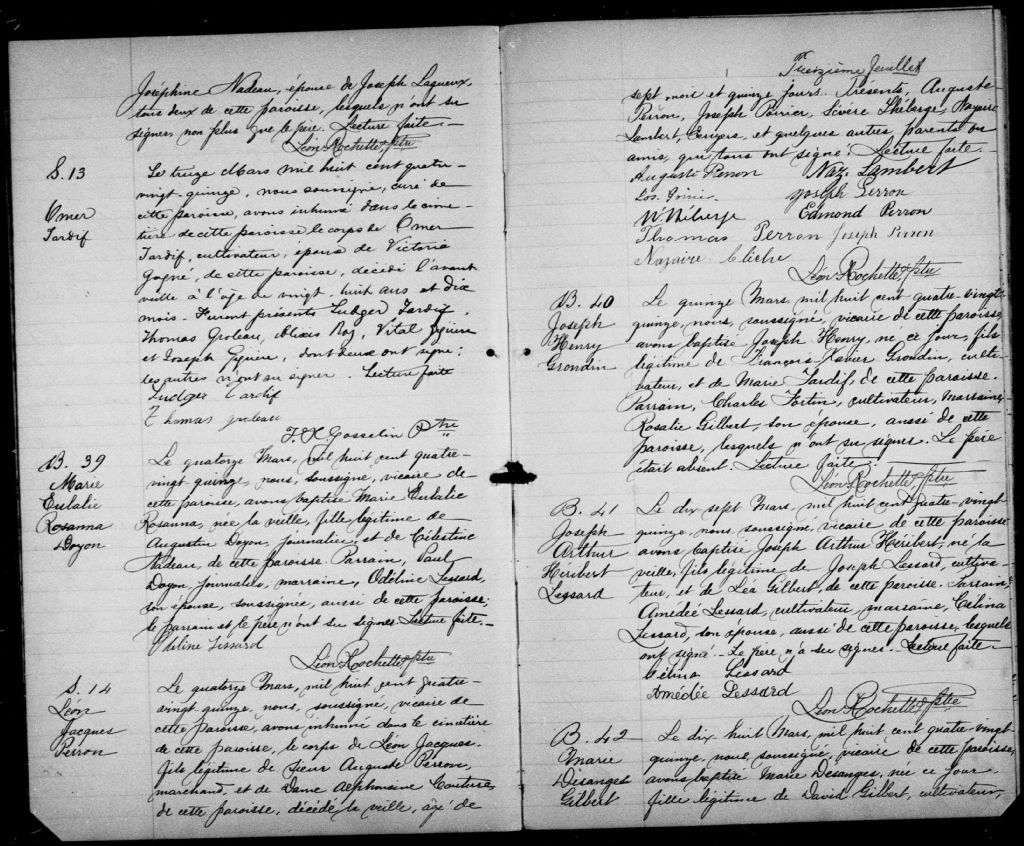 Joséphine Nadeau, épouse de Joseph Lagueux,
tous deux de cette paroisse, lesquels n'ont su
signer, non plus que le père. Lecture faite.
Léon Rochette, ptre
S. 13
Omer
Tardif
Le treize Mars mil huit cent quatre-
vingt-quinze, nous soussigné, curé de
cette paroisse, avons inhumé dans le cime-
tière de cette paroisse le corps de Omer
Tardif, cultivateur, époux de Victoria
Gagné, de cette paroisse, décédé l'avant
veille à l'âge de vingt-huit ans et dix
mois. Furent présents Ludger Tardif,
Thomas Groleau, Alexis Roy, Vital
et Joseph, dont deux ont signé;
les autres n'ont su signer. Lecture faite
Ludger Tardif
Thomas groleau
F. X. Gosselin Ptre
B. 39
Marie
Eulalie
Rosanna
Doyon
Le quatorze Mars, mil huit cent quatre-
vingt quinze, nous, soussigné, vicaire de
cette paroisse, avons baptisé Marie Eulalie
Rosanna, née la veille, fille légitime de
Augustin Doyon, journalier, et de Célestine
Nadeau, de cette paroisse. Parrain, Paul
Doyon, journalier, marraine, Odéline Lessard,
son épouse, soussignée, aussi de cette paroisse;
le parrain et le père n'ont su signer. Lecture faite.
Léon Rochette, ptre
S. 14
Léon
Jacques
Perron
Le quatorze Mars, mil huit cent quatre-
vingt quinze, nous, soussigné, vicaire de
cette paroisse, avons inhumé dans le cimetière
de cette paroisse, le corps de Léon Jacques,
fils légitime de Sieur Auguste Perron,
marchand, et de Dame Alphonsine Couture,
de cette paroisse, décédé la veille, âgé de
Treizième feuillet
sept mois et quinze jours. Présents, Auguste
Perron, Joseph Poirier, Sévère Théberge, Nazaire
Lambert, et quelques autres parents ou
amis, qui tous ont signé. Lecture faite.
Auguste Perron Naz. Lambert
Jos. Poirier Joseph Perron
Edmond Perron
Thomas Perron Joseph Perron
Nazaire Cliche
Léon Rochette, ptre
B. 40
Joseph
Henry
Grondin
Le quinze Mars, mil huit cent quatre-vingt
quinze, nous, soussigné, vicaire de cette paroisse,
avons baptisé Joseph Henry, né ce jour, fils
légitime de François-Xavier Grondin, culti-
vateur, et de Marie Tardif, de cette paroisse.
Parrain, Charles Fortin, cultivateur, marraine,
Rosalie Gilbert, son épouse, aussi de cette
paroisse, lesquels n'ont su signer. Le père
était absent. Lecture faite.
Léon Rochette, ptre
B. 41
Joseph
Arthur
Héribert
Lessard
Le dix sept Mars, mil huit cent quatre-vingt
quinze, nous, soussigné, vicaire de cette paroisse
avons baptisé Joseph Arthur Héribert, né la
veille, fils légitime de Joseph Lessard, cultiva-
teur, et de Léa Gilbert, de cette paroisse. Parrain,
Amédée Lessard, cultivateur, marraine, Célina
Lessard, son épouse, aussi de cette paroisse, lesquels
ont signé. Le père n'a su signer. Lecture faite.
Célina Lessard
Amédée Lessard
Léon Rochette, ptre
B. 42
Marie
Desanges
Gilbert
Le dix huit Mars, mil huit cent quatre-vingt
quinze, nous, soussigné, vicaire de cette paroisse,
avons baptisé Marie Desanges, née ce jour,
fille légitime de David Gilbert, cultivateur,